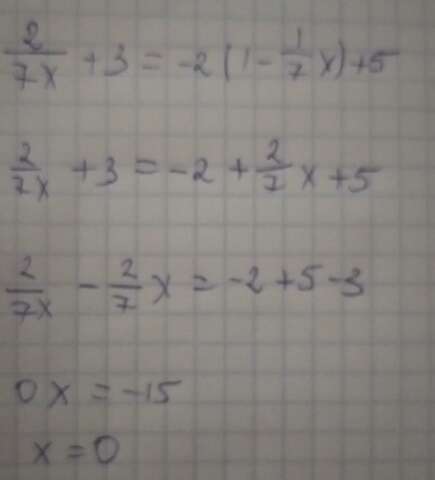 2/7x + 3 = -2(1 - 1/7 x) + 5
2/7x + 3 = -2 + 2/7 x + 5
2/7x - 2/7 x = -2 + 5 - 3
0x = -15
x = 0